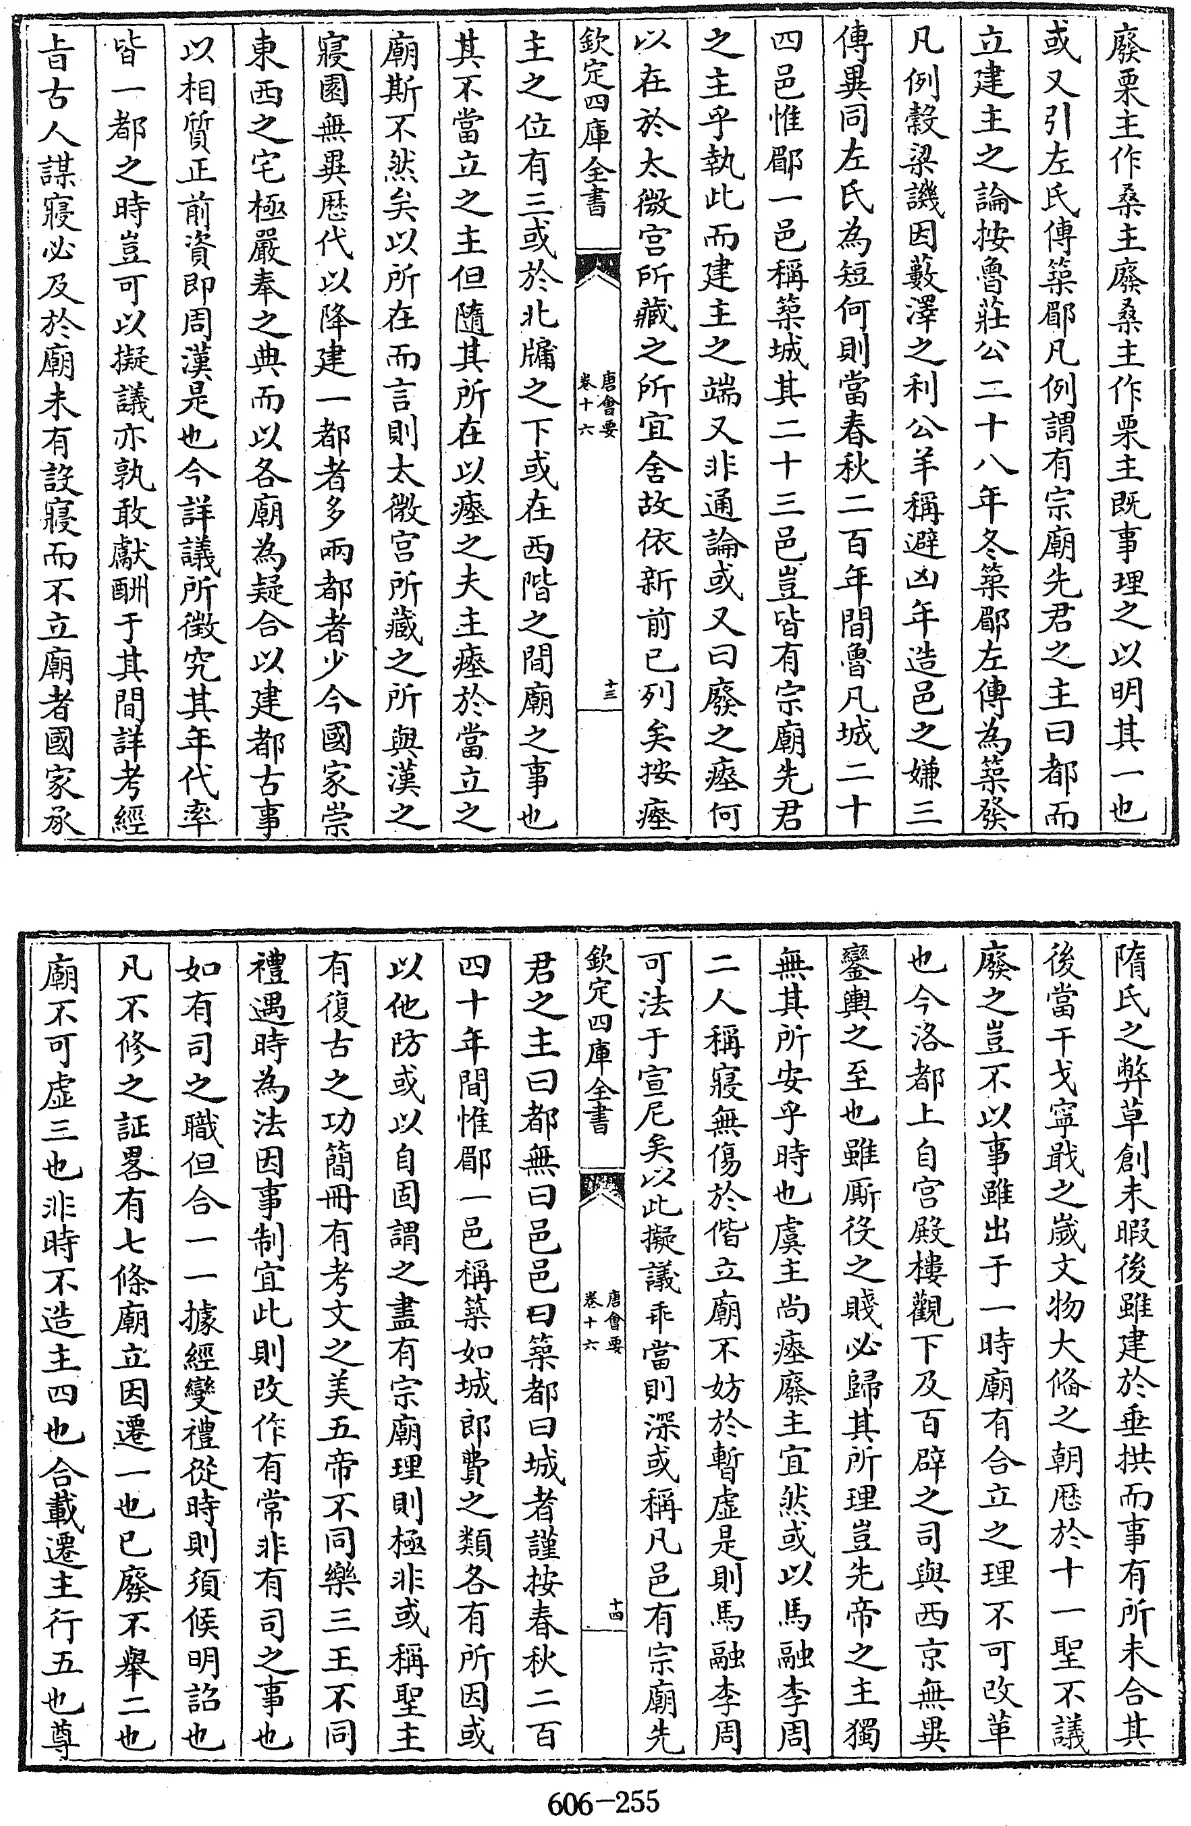 廢栗主作桑主廢桑主作栗主既事理之以明其一也
或又引左氏傳築郿凡例謂有宗廟先君之主曰都而
立建主之論按魯莊公二十八年冬築郿左傳為築發
凡例穀梁譏因藪澤之利公羊稱避凶年造邑之嫌三
傳異同左氏為短何則當春秋二百年間魯凡城二十
四邑惟郿一邑稱築城其二十三邑豈皆有宗廟先君
之主乎執此而建主之端又非通論或又曰廢之瘞何
以在於太微宫所藏之所宜舍故依新前已列矣按瘞
欽定四庫全書
唐會要
卷十六
十三
主之位有三或於北牖之下或在西階之間廟之事也
其不當立之主但隨其所在以瘞之夫主瘞於當立之
廟斯不然矣以所在而言則太微宫所藏之所與漢之
寢園無異歴代以降建一都者多兩都者少今國家崇
東西之宅極嚴奉之典而以各廟為疑合以建都古事
以相質正前資即周漢是也今詳議所徴究其年代率
皆一都之時豈可以擬議亦孰敢獻酬于其間詳考經
㫖古人謀寢必及於廟未有設寢而不立廟者國家承
隋氏之弊草創未暇後雖建於垂拱而事有所未合其
後當干戈寧戢之歲文物大偹之朝歴於十一聖不議
廢之豈不以事雖出于一時廟有合立之理不可改革
也今洛都上自宫殿樓觀下及百辟之司與西京無異
鑾輿之至也雖厮役之賤必歸其所理豈先帝之主獨
無其所安乎時也虞主尚瘞廢主宜然或以馬融李周
二人稱寢無傷於偕立廟不妨於暫虚是則馬融李周
可法于宣尼矣以此擬議乖當則深或稱凡邑有宗廟先
欽定四庫全書
唐會要
卷十六
十四
君之主曰都無曰邑邑曰築都曰城者謹按春秋二百
四十年間惟郿一邑稱築如城郎費之類各有所因或
以他防或以自固謂之盡有宗廟理則極非或稱聖主
有復古之功簡冊有考文之美五帝不同樂三王不同
禮遇時為法因事制宜此則改作有常非有司之事也
如有司之職但合一一據經變禮從時則須候明詔也
凡不修之証畧有七條廟立因遷一也已廢不舉二也
廟不可虚三也非時不造主四也合載遷主行五也尊
606-255